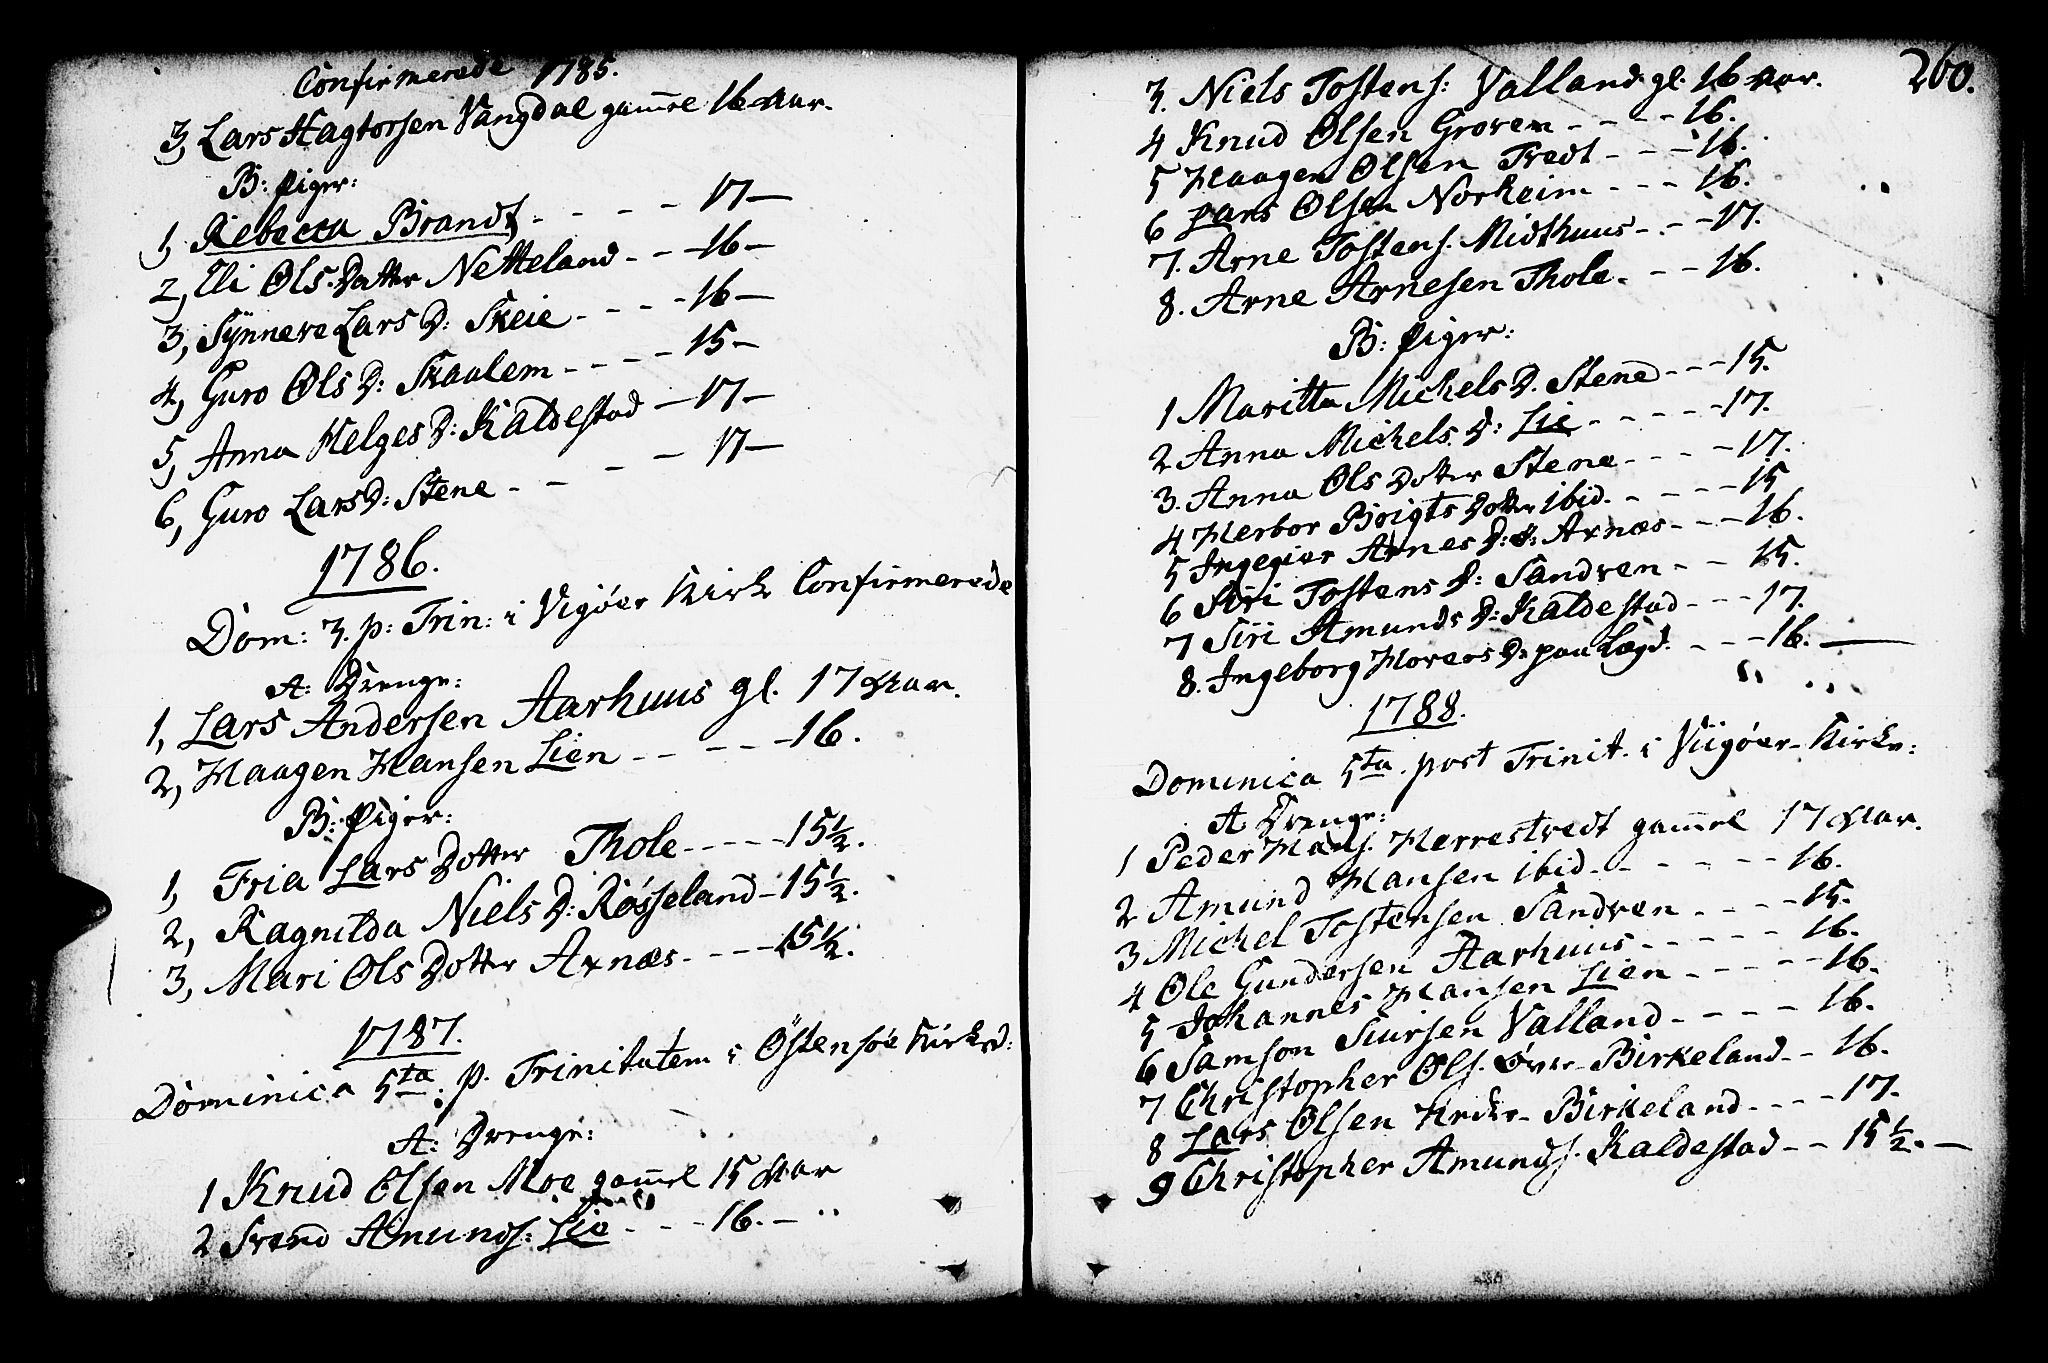 Confirmerede 1785.
3, Lars Hagtorsen Vangdal gam̅el 16 Aar.
B: Piger:
1, Rebecca Brandt - - - - 17 —
2, Eli Ols Datter Netteland - - 16 —
3, Synneve Lars D: Skeie - - - - 16 —
4, Guro Ols D: Skaalem - - - - 15 —
5, Anna Helges D: Kaldestad — 17 —
6, Guro Lars D: Stene - - - - 17 —
1786.
Dom: 3. p: Trin: i Vigøer Kirk Confirmerede
A: Drenge:
1, Lars Andersen Aarhuus gl. 17 Aar.
2, Haagen Hansen Lien - - - - 16.
B: Piger:
1, Fria Lars Dotter Thole - - - - 15½.
2, Ragnilda Niels D: Røsseland - 15½.
3, Mari Ols Dotter Axnæs - - - - 15½.
1787.
Dominica 5ta p. Trinitatem i Östensøe Kirke:
A: Drenge:
1 Knud Olsen Moe gam̅el 15 Aar
2 Svend Amunds: Lie - - - 16. —
260.
3. Niels Tostens: Valland gl. 16 Aar.
4 Knud Olsen Groven - - - - 16.
5 Haagen Olsen Tvedt - - - 16.
6 Lars Olsen Norheim - - - 16.
7. Arne Tostens. Midthuus - - - 17.
8. Arne Arnesen Thole - - - 16.
B: Piger:
1 Maritta Michels D. Stene - - - 15.
2 Anna Michels D: Lie - - - - - 17.
3. Anna Ols Dotter Stene - - - - 17.
4 Herbor Brigts Dotter ibid. - - - - 15
5 Ingegier Arnes D: Axnæs - - - 16.
6 Siri Tostens D: Sandven - - 15.
7 Siri Amunds D: Kaldestad - - - 17.
8. Ingeborg Hovers D: paa Lægd. - - - 16. —
1788.
Dominica 5ta. post Trinit. i Viigøer-Kirke:
A Drenge:
1 Peder Hans. Herrestvedt gam̅el 17 Aar.
2 Amund Hansen ibid - - - - - - 16.
3 Michel Tostensen Sandven - - - - 15.
4 Ole Gundersen Aarhuus - - - - - 16.
5 Johannes Hansen Lien - - - - - 16.
6 Samson Siursen Valland - - - - 16.
7 Christopher Ols. Øvre-Birkeland - - 16.
8 Lars Olsen Nedre-Birkeland - - - - 17.
9 Christopher Amunds. Kaldestad - - 15½. —